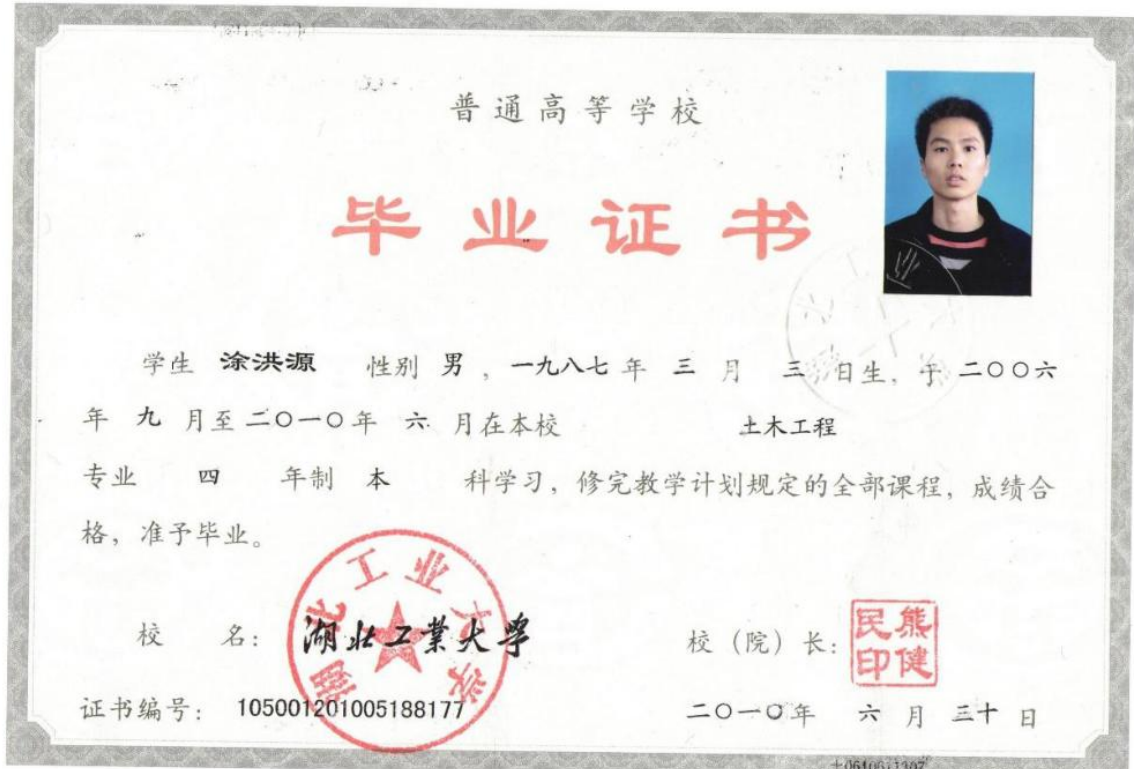 普通高等学校
毕业证书
学生 涂洪源 性别 男 ，一九八七 年 三 月 三 日生，于 二〇〇六
年 九 月至 二〇一〇 年 六 月在本校 土木工程
专业 四 年制 本 科学习，修完教学计划规定的全部课程，成绩合
格，准予毕业。
湖北工业大学
校 名： 湖北工業大學
校（院）长： 熊健民印
证书编号： 105001201005188177
二〇一〇年 六 月 三十 日